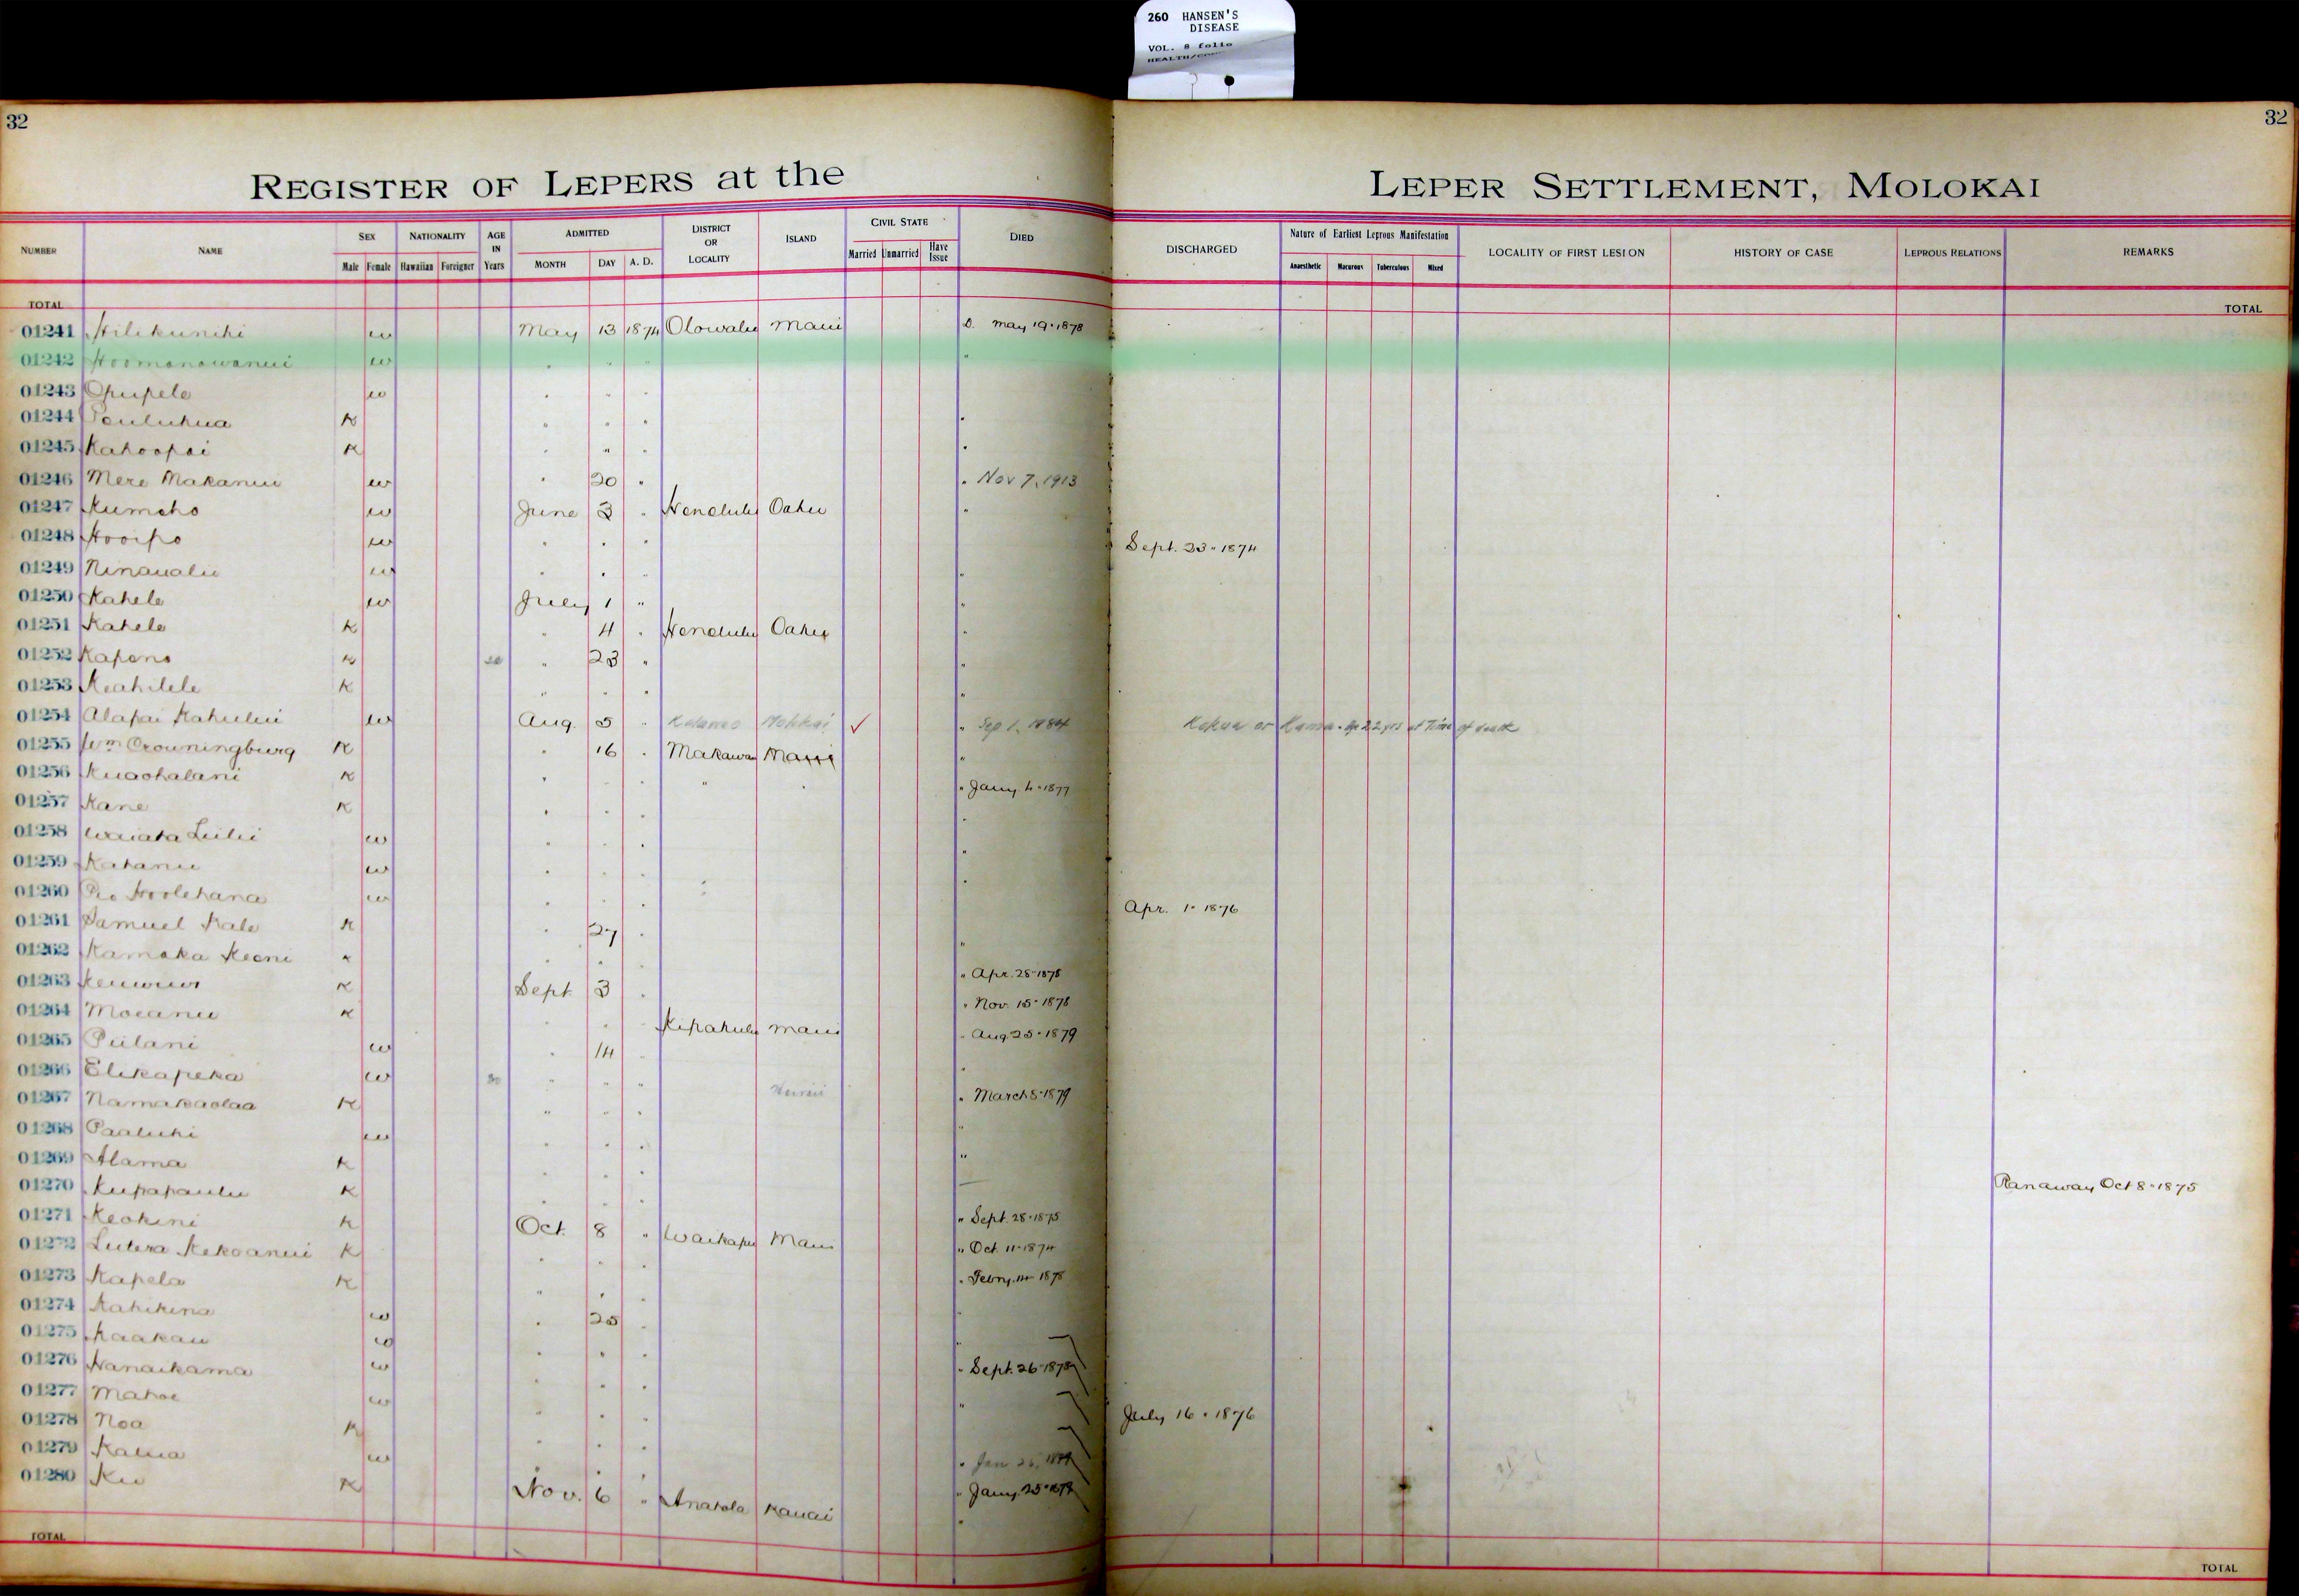 260 HANSEN'S
DISEASE
VOL. 8 folio
32
32
REGISTER OF LEPERS at the LEPER SETTLEMENT, MOLOKAI
NUMBER NAME SEX Male Female NATIONALITY Hawaiian Foreigner AGE IN Years ADMITTED MONTH DAY A. D. DISTRICT OR LOCALITY ISLAND CIVIL STATE Married Unmarried Have Issue DIED DISCHARGED Nature of Earliest Leprous Manifestation Anaesthetic Macurous Tuberculous Mixed LOCALITY OF FIRST LESION HISTORY OF CASE LEPROUS RELATIONS REMARKS
TOTAL TOTAL
01241 Hilikunihi w May 13 1874 Olowalu Maui D. May 19. 1878
01242 Hoomanawanui w " " " "
01243 Opupele w " " "
01244 Pauluhua K " " " "
01245 Kahoopai K " " " "
01246 Mere Makanui w " 20 " " Nov 7, 1913
01247 Kumeho w June 3 " Honolulu Oahu "
01248 Hooipo w " " " Sept. 23. 1874
01249 Ninaualu w " " " "
01250 Kahele w July 1 " "
01251 Kahele K " 4 " Honolulu Oahu "
01252 Kapono K " 23 " "
01253 Keahilele K " " " "
01254 Alapai Kahului w Aug. 5 " Molokai ✓ " Sep 1, 1884 Kokua or Kamaa. Age 22 yrs at Time of death
01255 Wm Crowningburg K " 16 " Makawao Maui "
01256 Kuaohalani K " " " " " " Jany. 4. 1877
01257 Kane K " " " "
01258 Waiaka Luilii w " " " "
01259 Kahanu w " " " "
01260 Pio Hoolehana w " " " Apr. 1. 1876
01261 Samuel Kale K " 27 " "
01262 Kamaka Keoni K " " " " Apr. 28. 1878
01263 Keuwus K Sept. 3 " " Nov. 15. 1878
01264 Moeanu K " " " Kipahulu Maui " Aug 25. 1879
01265 Piilani w " 14 " "
01266 Elikapeka w 30 " " " Hawaii " March 5. 1879
01267 Namakaolaa K " " " "
01268 Paaluhi w " " " "
01269 Alama K " " "
01270 Kupapaulu K " " " Ranaway Oct 8. 1875
01271 Keokini K Oct. 8 " Waikapu Maui " Sept. 28. 1875
01272 Lutera Kekoanui K " " " " Oct. 11. 1874
01273 Kapela K " " " " Febry. 14. 1878
01274 Kahikina w " 25 " "
01275 Kaakau w " " " "
01276 Nanaikama w " " " " Sept. 26. 1878
01277 Mahoe w " " " "
01278 Noa K " " " July 16. 1876
01279 Kalua w " " " " Jan 26,
01280 Ku K Nov. 6 " Anahola Kauai " Jany. 25.
TOTAL TOTAL